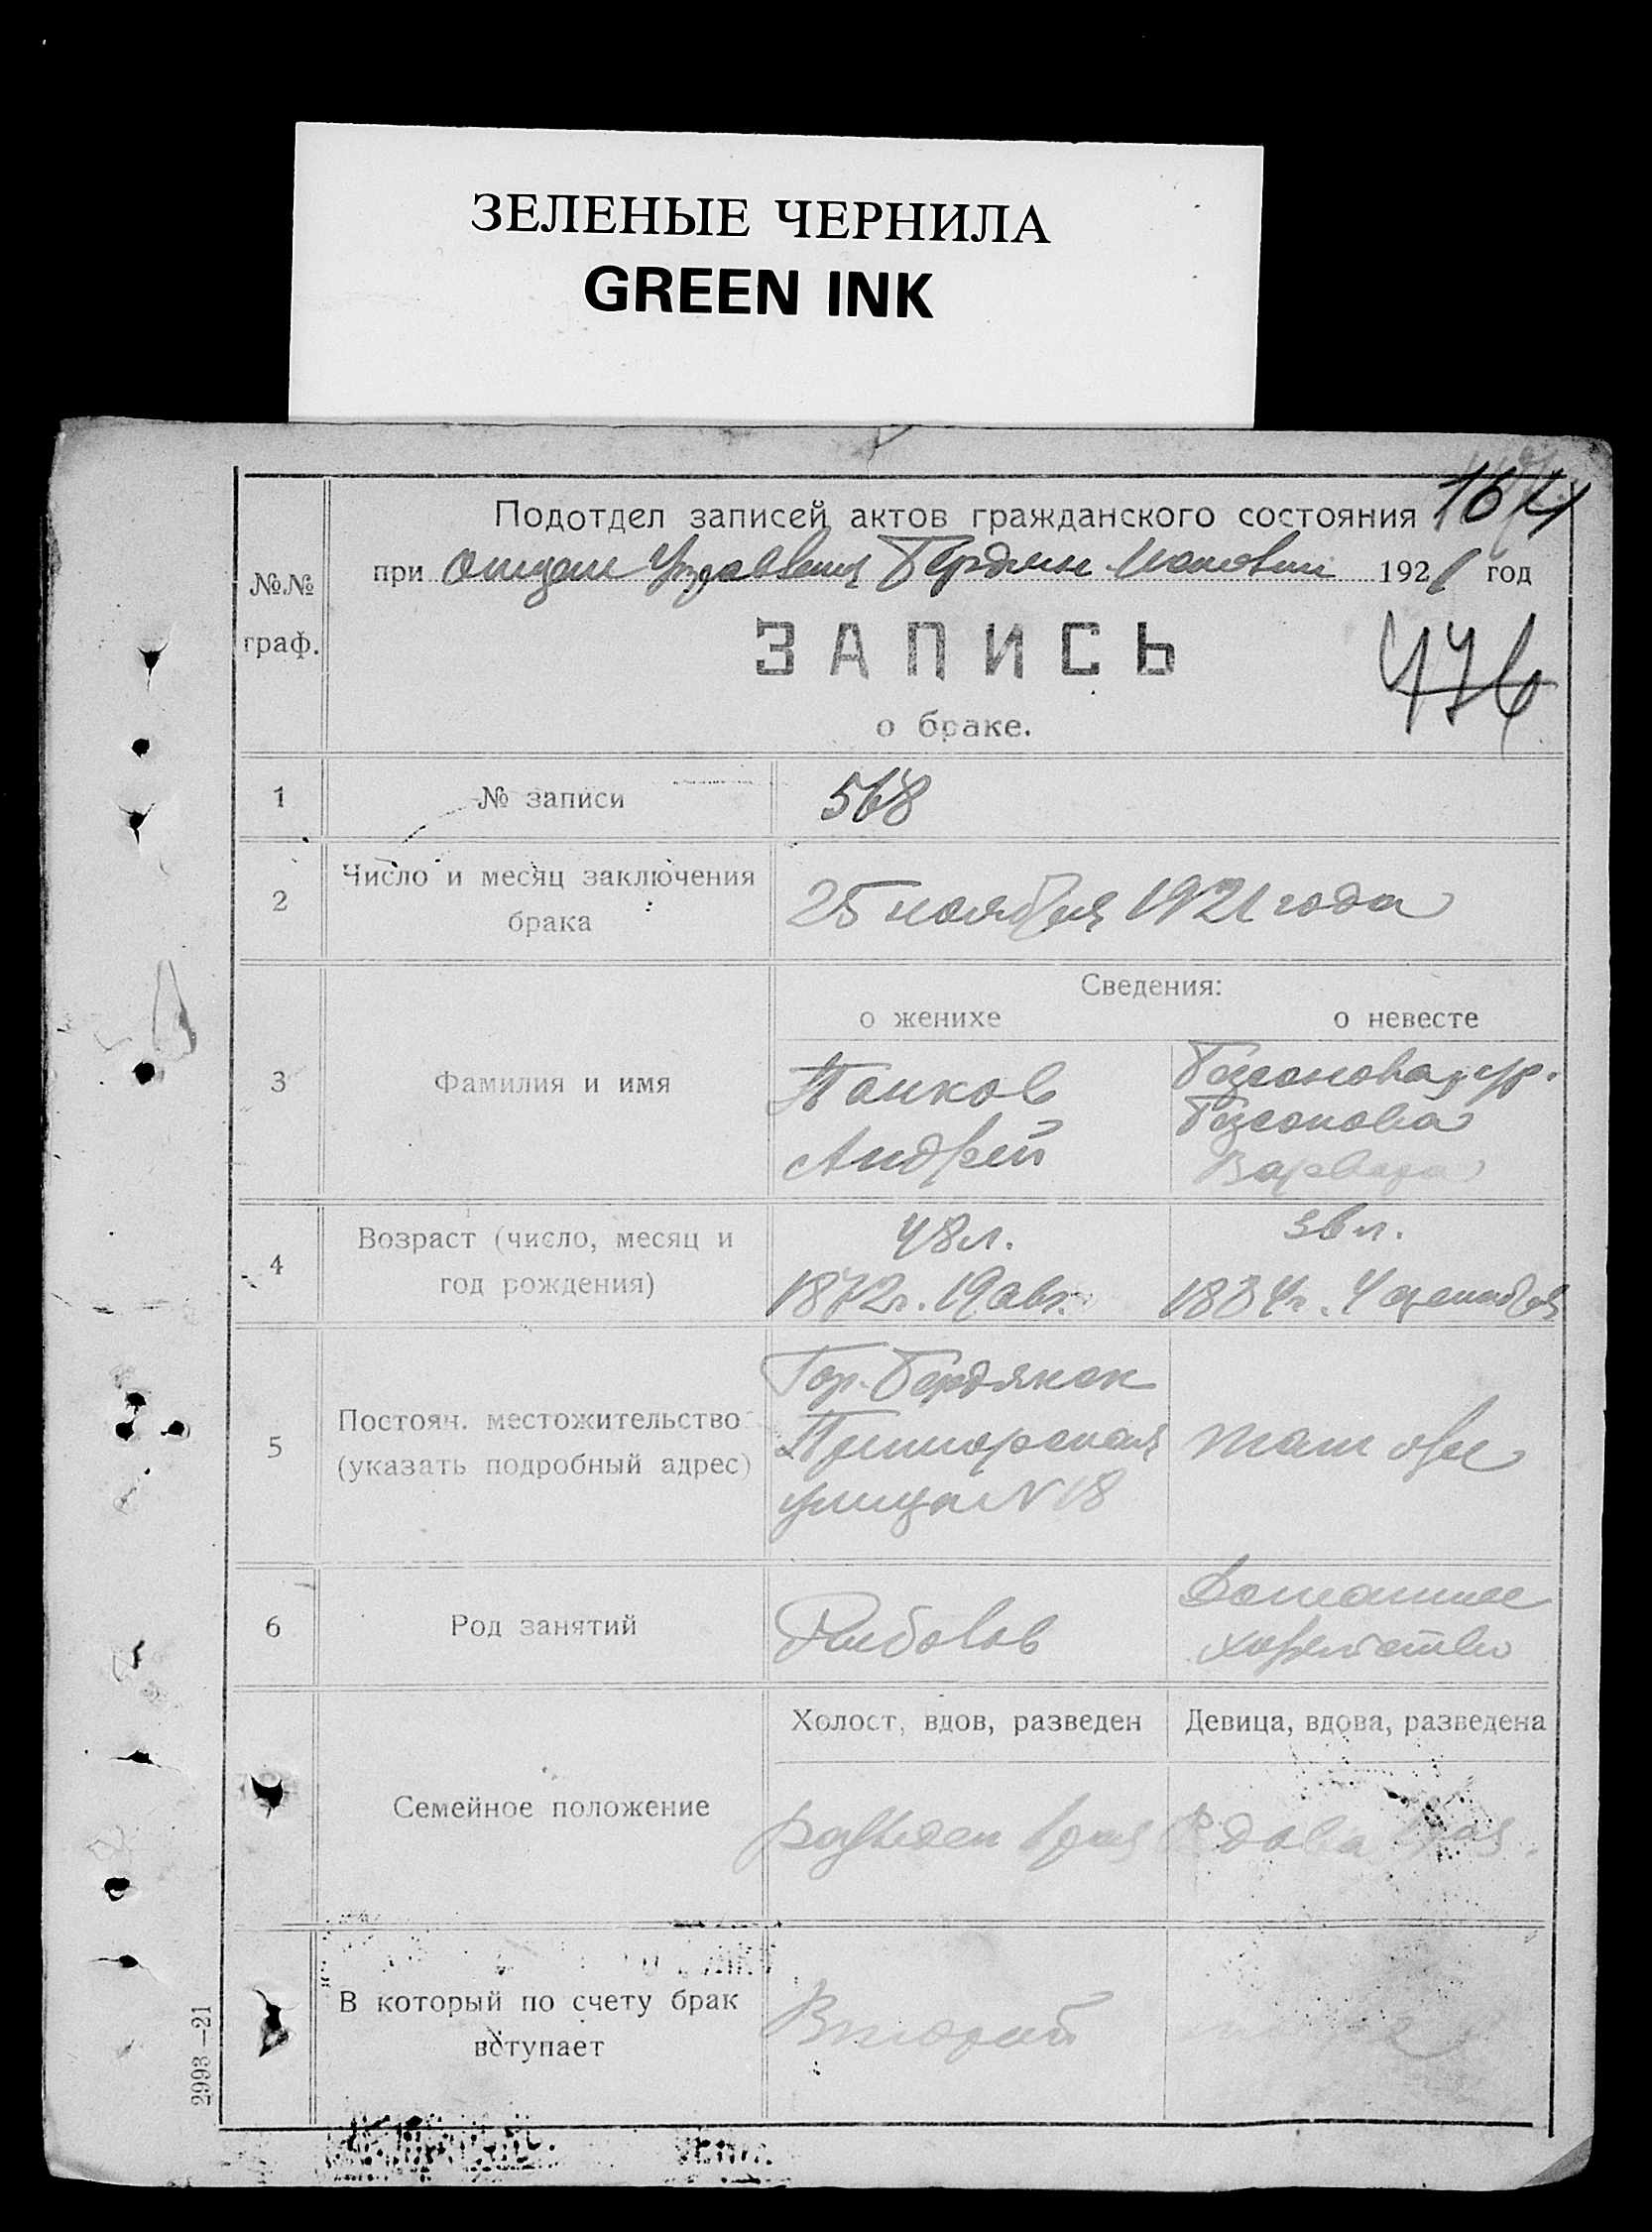 ЗЕЛЕНЫЕ ЧЕРНИЛА
GREEN INK
164
Подотдел записей актов гражданского состояния
при Отдел Управления Бердян 1921 год
№№ граф.
ЗАПИСЬ
476
о браке.
1 № записи 568
2 Число и месяц заключения
брака
25 ноября 1921 года
Сведения:
о женихе о невесте
3 Фамилия и имя
Панков
Андрей
ур.
Варвара
4 Возраст (число, месяц и
год рождения)
48 л. 36 л.
1872 г. 19 авг. 1884 г. 4
5 Постоян. местожительство
(указать подробный адрес)
Гор. Бердянск
Приморская
улица N 18
там же
6 Род занятий
Рыболов
Домашнее
хозяйство
Холост, вдов, разведен Девица, вдова, разведена
Семейное положение
разведен вдова
В который по счету брак
вступает
Второй
2993—21